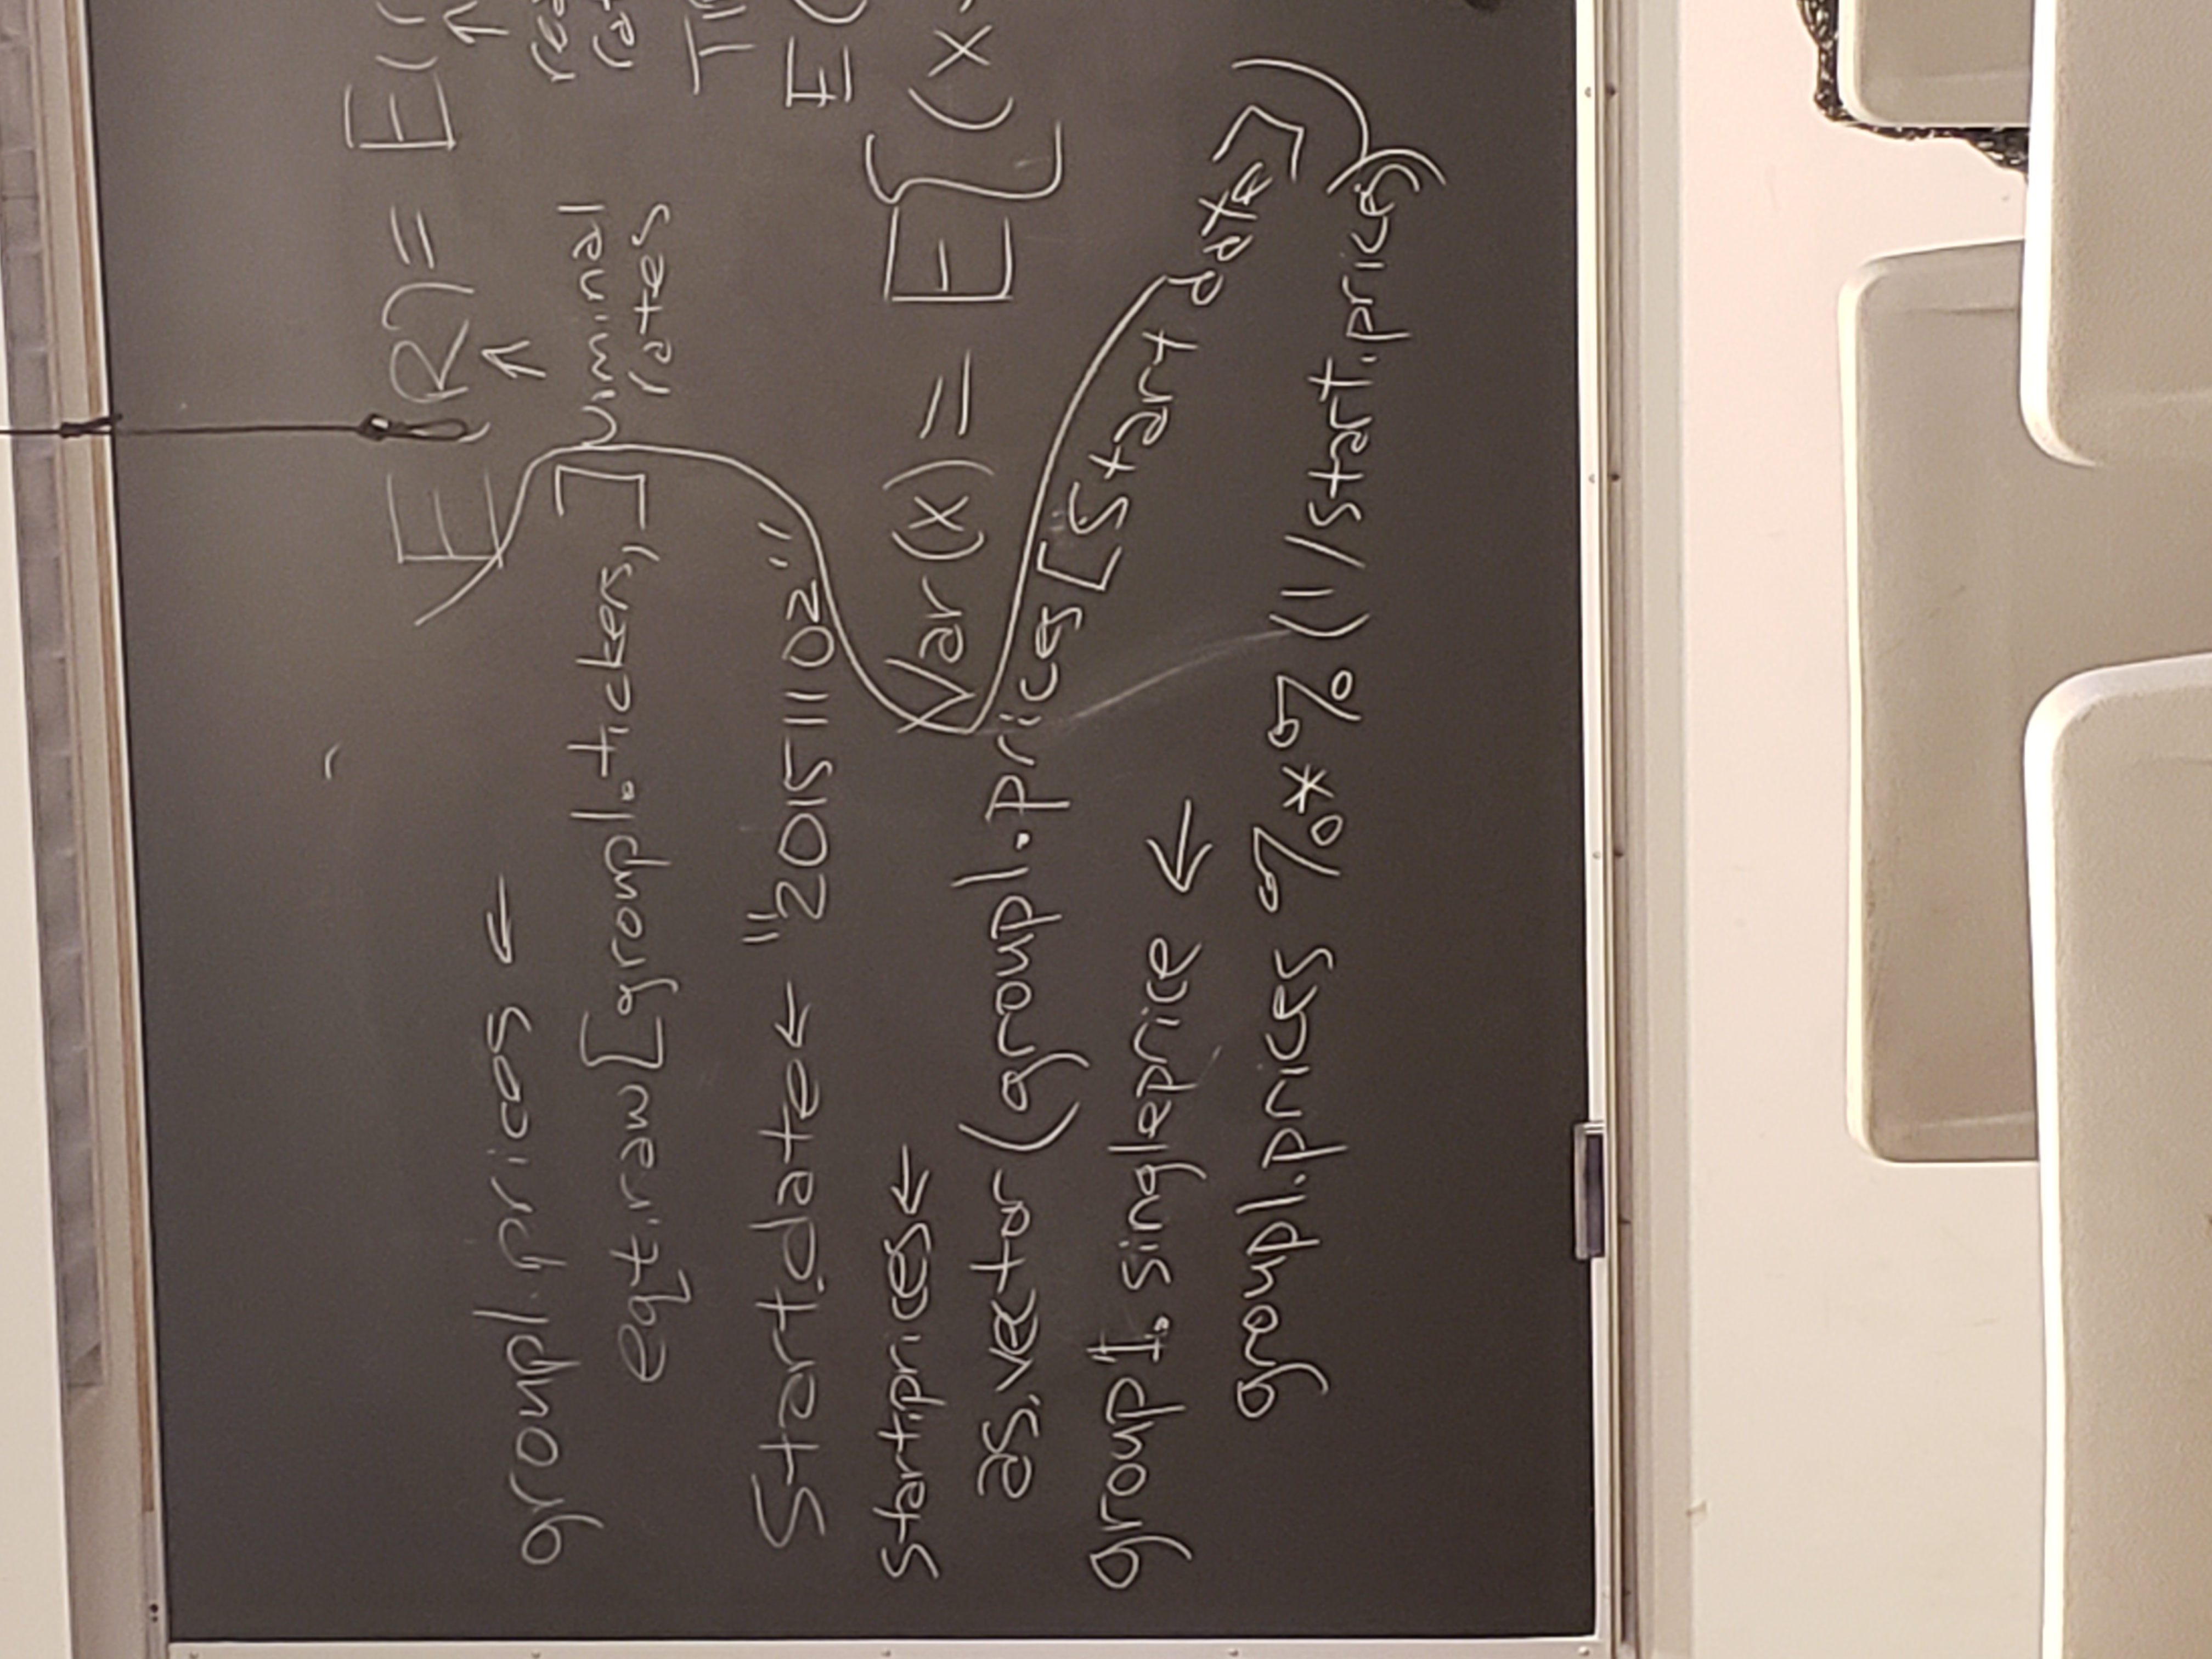 group1.prices ←
eqt.raw[group1.tickers, ]
Start.date ← "20151102"
start.prices ←
as.vector(group1.prices[Start date])
group1.singleprice ←
group1.prices %*% (1/start.prices)
E(R) = E(r
↑ ↑
Niminal
rates
E(
Var(X) = E{(X-